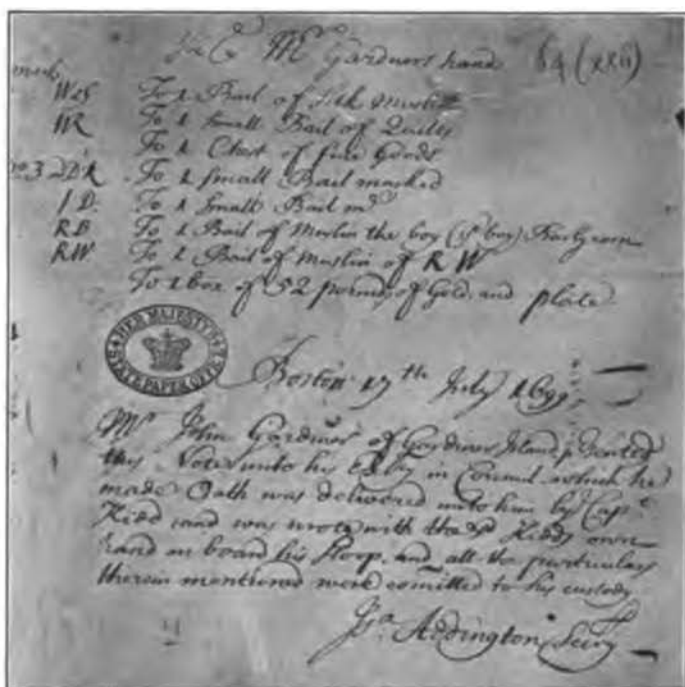 In Mr Gardners hand 64 (xxii)
mark
W & S To 1 Bail of Silk Muslin
WR To 1 Small Bail of Quilts
To 1 Chest of fine Goods
no. 3 DR To 1 small Bail marked
J D. To 1 Small Bail md
RB To 1 Bail of Muslin the boy
RW To 1 Bail of Muslin of R W
To 1 box of 52 pound of Gold and plate
HER MAJESTY'S STATE PAPER OFFICE
Boston 17th July 1699
Mr John Gardiner of Gardiners Island p'sented
this Note unto his Excy in Council which he
made Oath was delivered unto him by Capt
Kidd and was wrote with the sd Kidds own
hand on board his Sloop, and all the particulars
therein mentioned were comitted to his custody
Jsa. Addington Secry